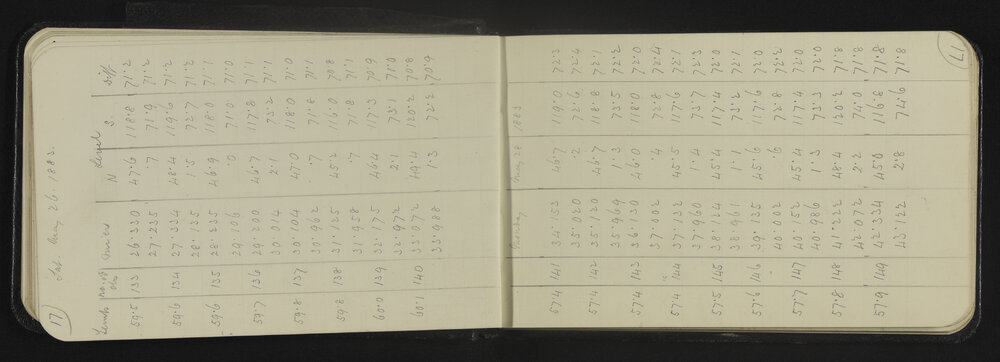 17
Sat. May 26. 1883.
Level
Temp No. of obs Micros N S. Diff.
59.5 133 26.330 47.6 118.8 71.2
27.235 .7 71.9 71.2
59.6 134 27.334 48.4 119.6 71.2
28.135 1.5 72.7 71.2
59.6 135 28.235 46.9 118.0 71.1
29.106 .0 71.0 71.0
59.7 136 29.200 46.7 117.8 71.1
30.014 2.1 73.2 71.1
59.8 137 30.104 47.0 118.0 71.0
30.962 .7 71.8 71.1
59.8 138 31.125 116.0 70.8
31.958 .7 71.8 71.1
60.0 139 32.175 46.4 117.3 70.9
32.972 2.1 73.1 71.0
60.1 140 33.072 49.4 120.2 70.8
33.988 1.3 72.2 70.9
17
Monday May 28 1883
57.4 141 34.153 46.7 119.0 72.3
35.020 .2 72.6 72.4
57.4 142 35.120 46.7 118.8 72.1
35.969 1.3 73.5 72.2
57.4 143 36.130 46.0 118.0 72.0
37.002 .4 72.8 72.4
57.4 144 37.132 45.5 117.6 72.1
37.960 1.4 73.7 72.3
57.5 145 38.124 45.4 117.4 72.0
38.961 1.1 73.2 72.1
57.6 146 39.135 45.6 117.6 72.0
40.002 .6 72.8 72.2
57.7 147 40.152 45.4 117.4 72.0
40.986 1.3 73.3 72.0
57.8 148 41.222 48.4 120.2 71.8
42.072 2.2 74.0 71.8
57.9 149 42.334 45.0 116.8 71.8
43.122 2.8 74.6 71.8